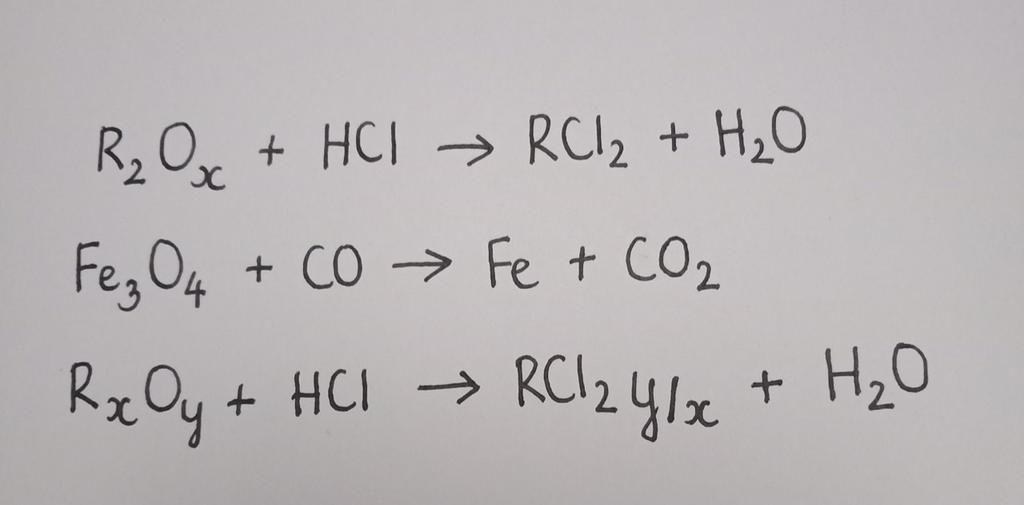 R₂Oₓ + HCl → RCl₂ + H₂O
Fe₃O₄ + CO → Fe + CO₂
RₓOᵧ + HCl → RCl₂y/x + H₂O